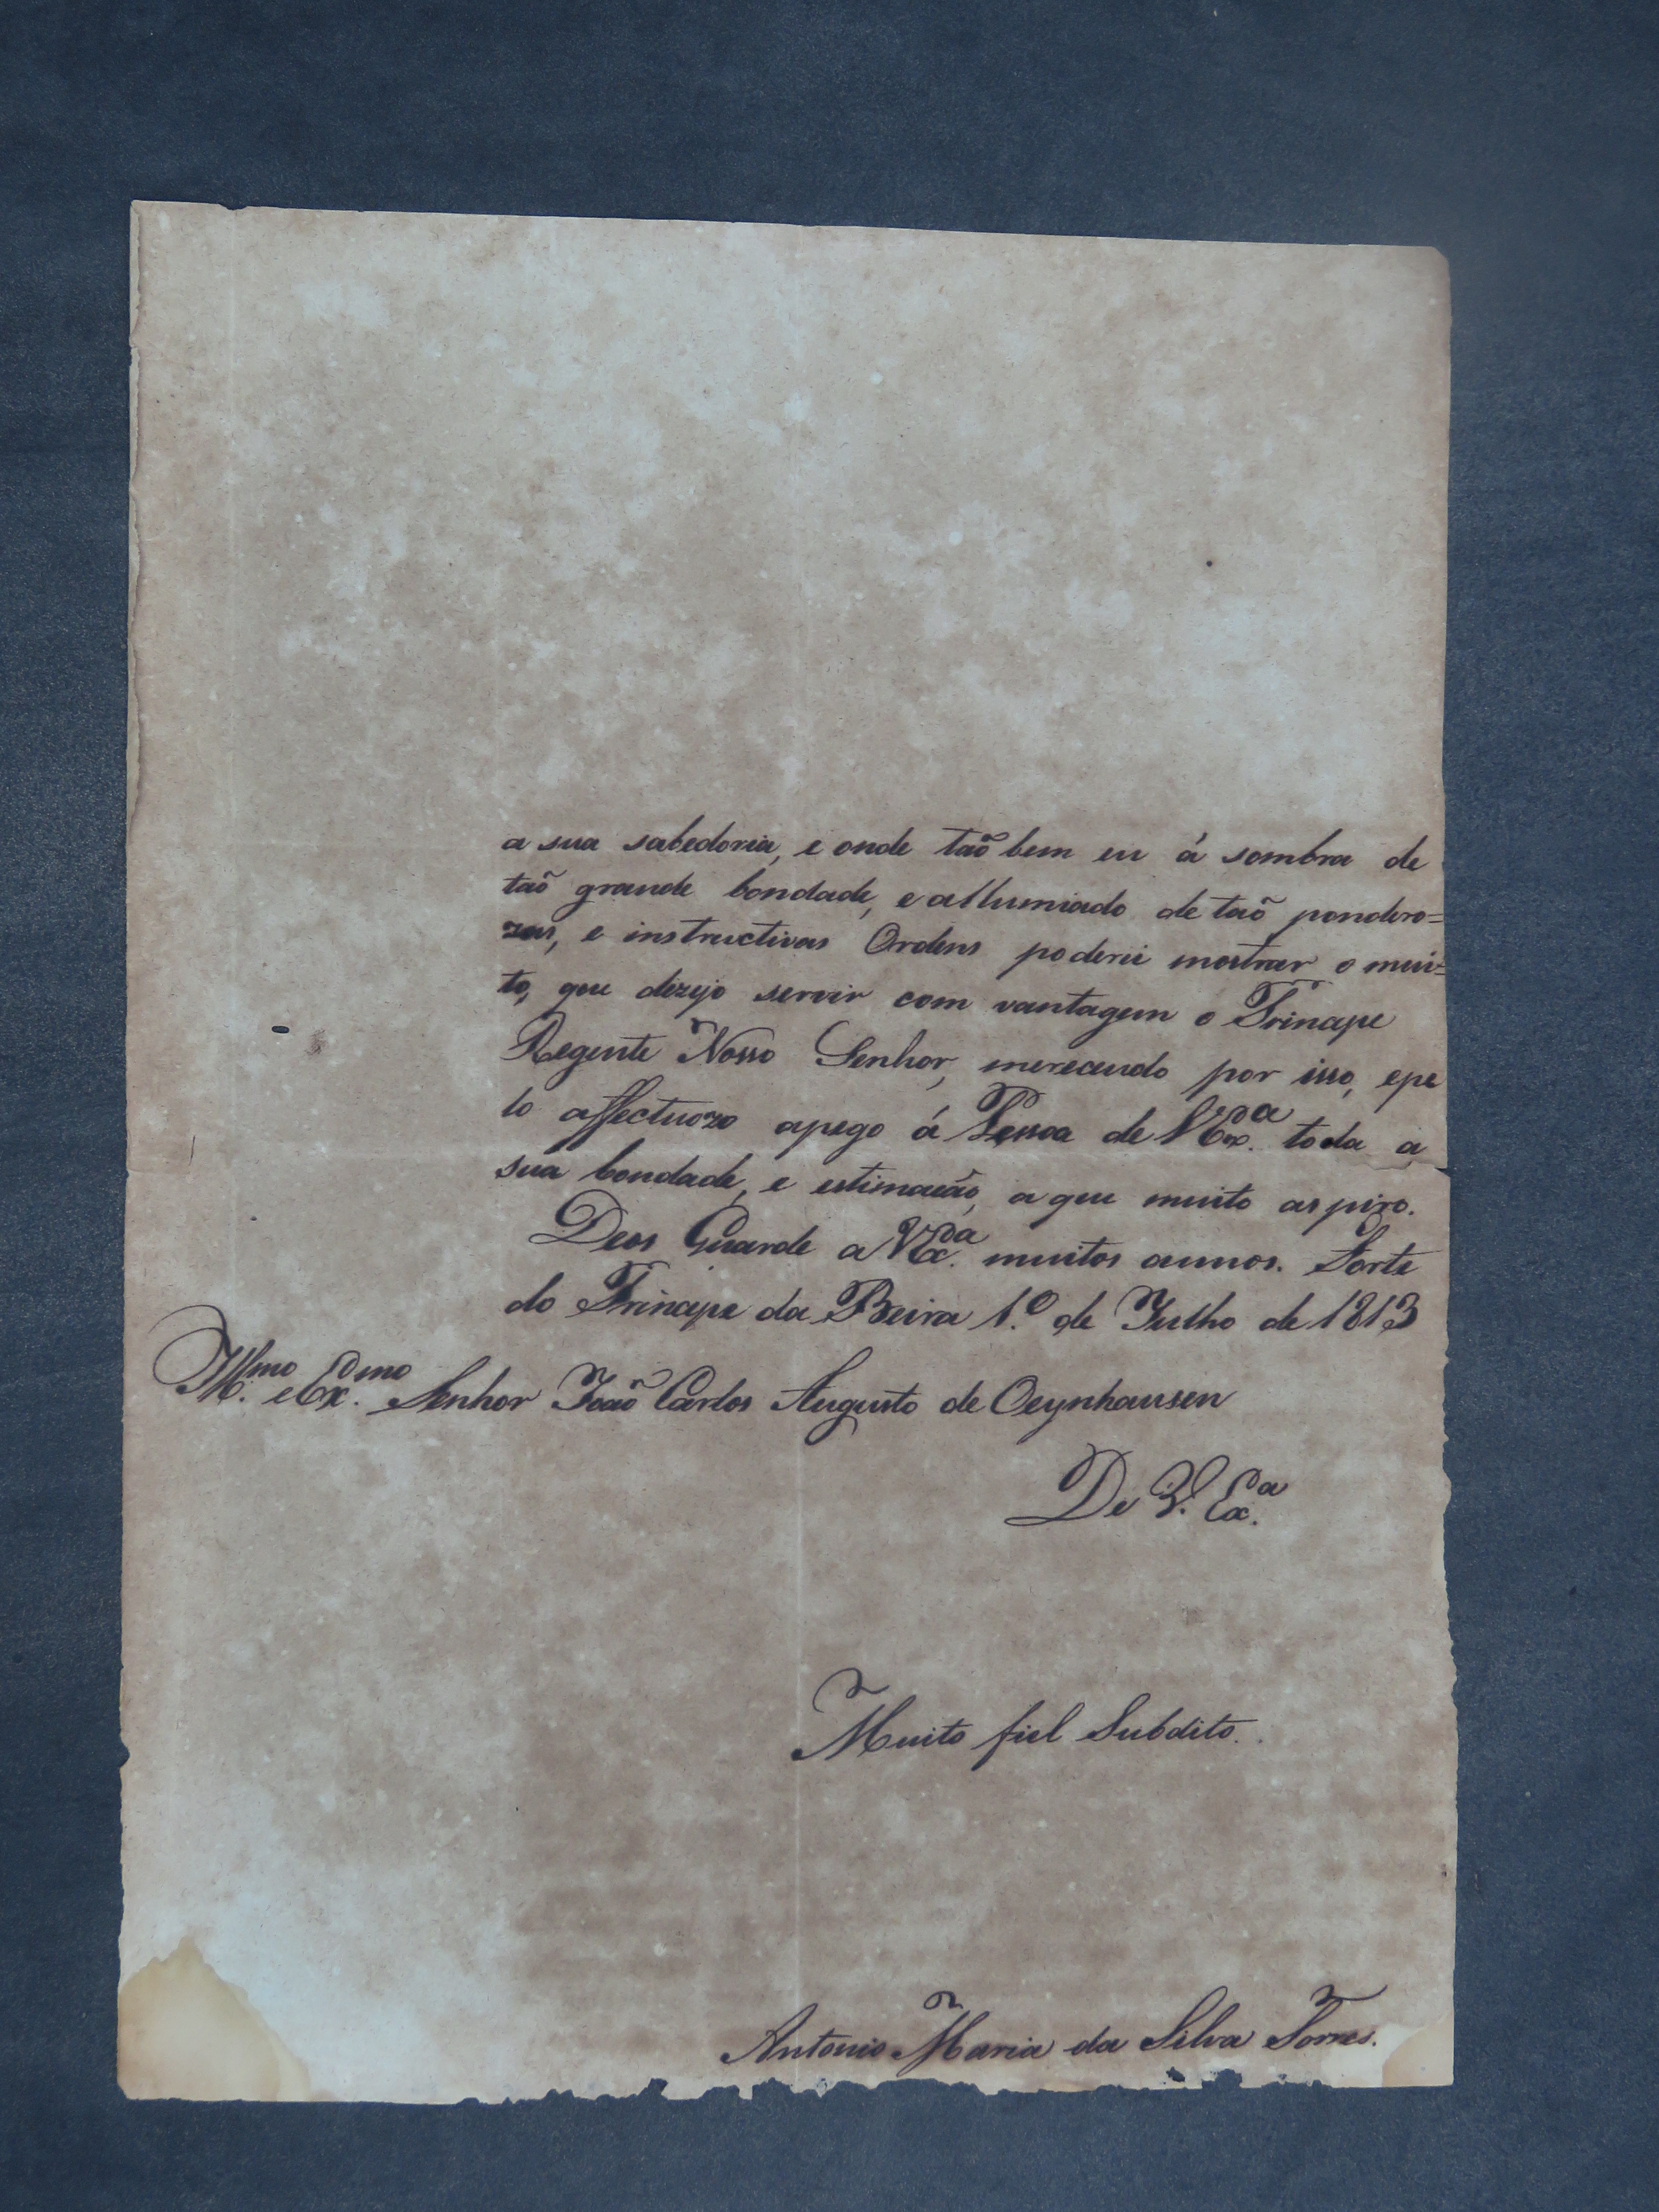 a sua sabedoria, e onde taõ bem eu á sombra de
taõ grande bondade, e allumiado de taõ pondero=
zas, e instructivas Ordens poderei mostrar o mui=
to, que dezejo servir com vantagem o Principe
Regente Nosso Senhor, merecendo por isso, epe
lo affectuozo apego á Pessoa de V Ex.ª toda a
sua bondade, e estimação, a que muito aspiro.
Deos Guarde a V Ex.ª muitos annos. Forte
do Principe da Beira 1.º de Julho de 1813
Ill.mo e Ex.mo Senhor Joaõ Carlos Augusto de Oeynhausen
De V. Ex.ª
Muito fiel Subdito.
Antonio Maria da Silva Torres.